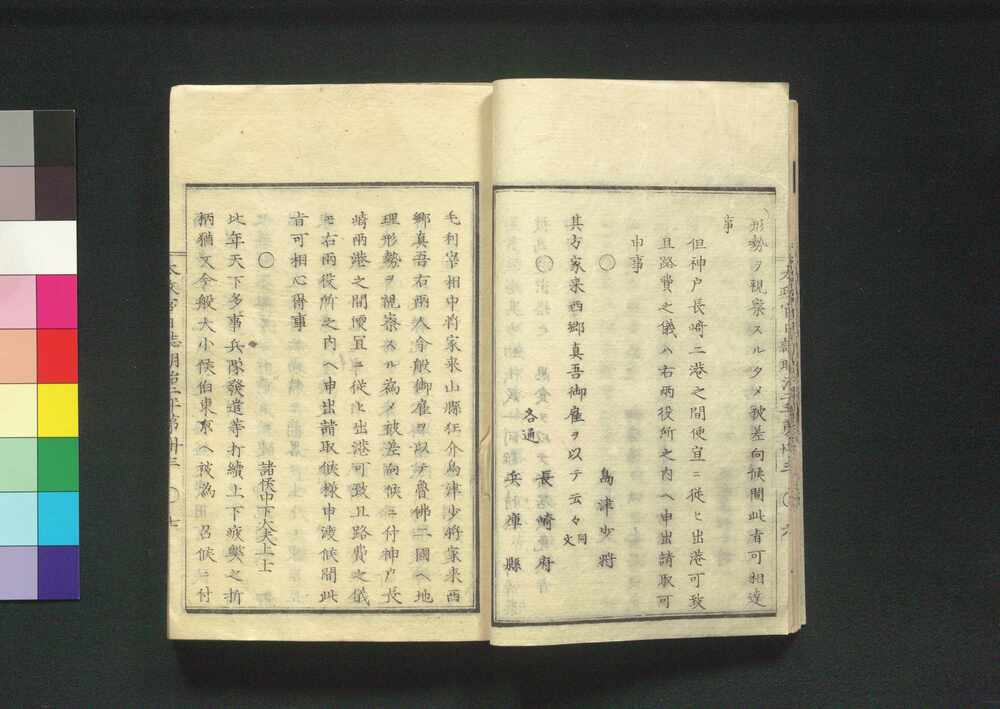 形勢ヲ視察スルタメ被差向候間此者可相達
事
但神戸長崎二港之間便宜ニ従ヒ出港可致
且路費之儀ハ右両役所之内ヘ申出請取可
申事
〇 島津少将
其方家来西郷真吾御雇ヲ以テ云々同文
〇 長崎府
各通
兵庫縣
毛利宰相中将家来山縣狂介島津少将家来西
郷真吾右両人今般御雇ヲ以テ魯佛二國ヘ地
理形勢ヲ視察スル為メ被差向候ニ付神戸長
崎両港之間便宜ニ従ヒ出港可致且路費之儀
ハ右両役所之内ヘ申出請取候様申渡候間此
旨可相心得事
〇 諸侯中下大夫上士
比年天下多事兵隊發遣等打續上下疲弊之折
柄猶又今般大小侯伯東京ヘ被為召候ニ付
太政官日誌明治二年第卅三 〇 七
太政官日誌明治二年第卅三 〇 六